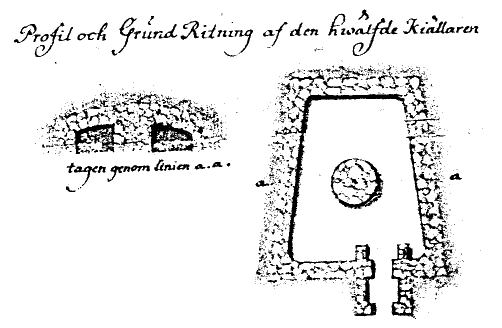 Profil och Grund Ritning af den hwälfde Kiällaren
tagen genom linien a.a.
a
a